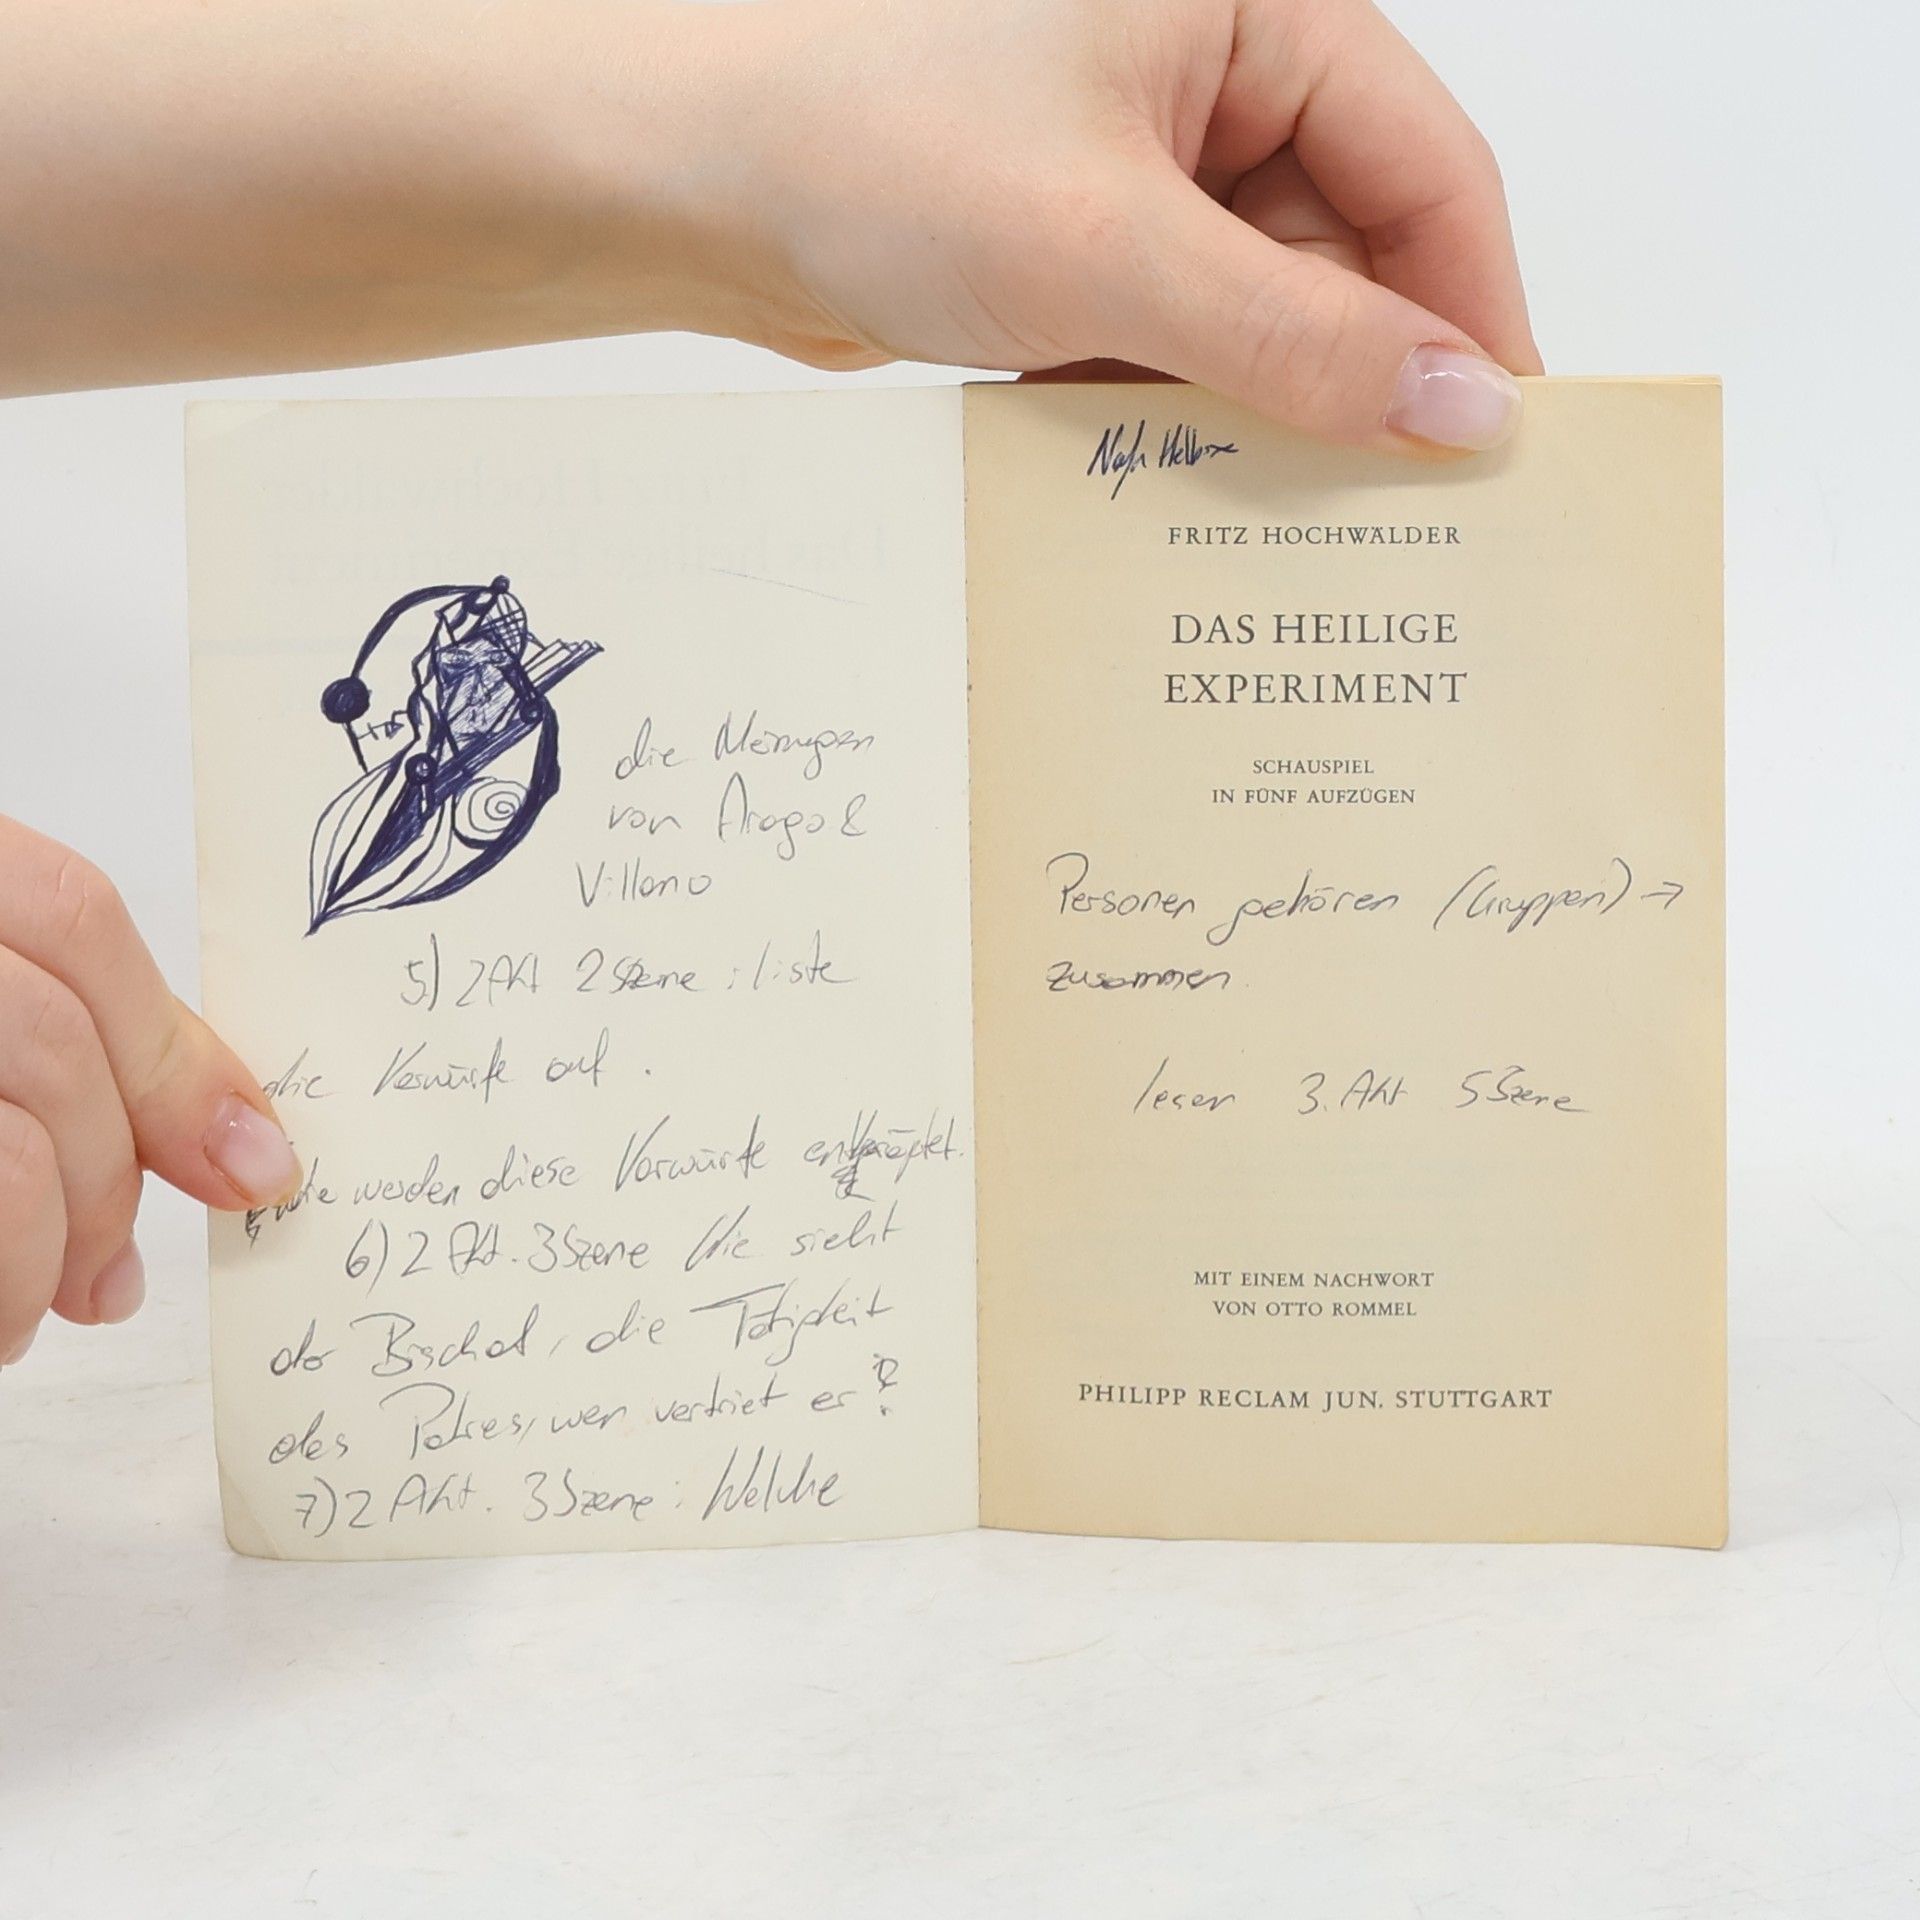 die Meinungen
von Arago &
Villano
5) 2 Akt 2 Szene : liste
die Vorwürfe auf.
werden diese Vorwürfe entkräftet.
6) 2 Akt. 3 Szene Wie sieht
der Bischof, die Tätigkeit
des Patres, wen vertriet er?
7) 2 Akt. 3 Szene : Welche
FRITZ HOCHWÄLDER
DAS HEILIGE
EXPERIMENT
SCHAUSPIEL
IN FÜNF AUFZÜGEN
Personen gehören (Gruppen) →
zusammen.
lesen 3. Akt 5 Szene
MIT EINEM NACHWORT
VON OTTO ROMMEL
PHILIPP RECLAM JUN. STUTTGART